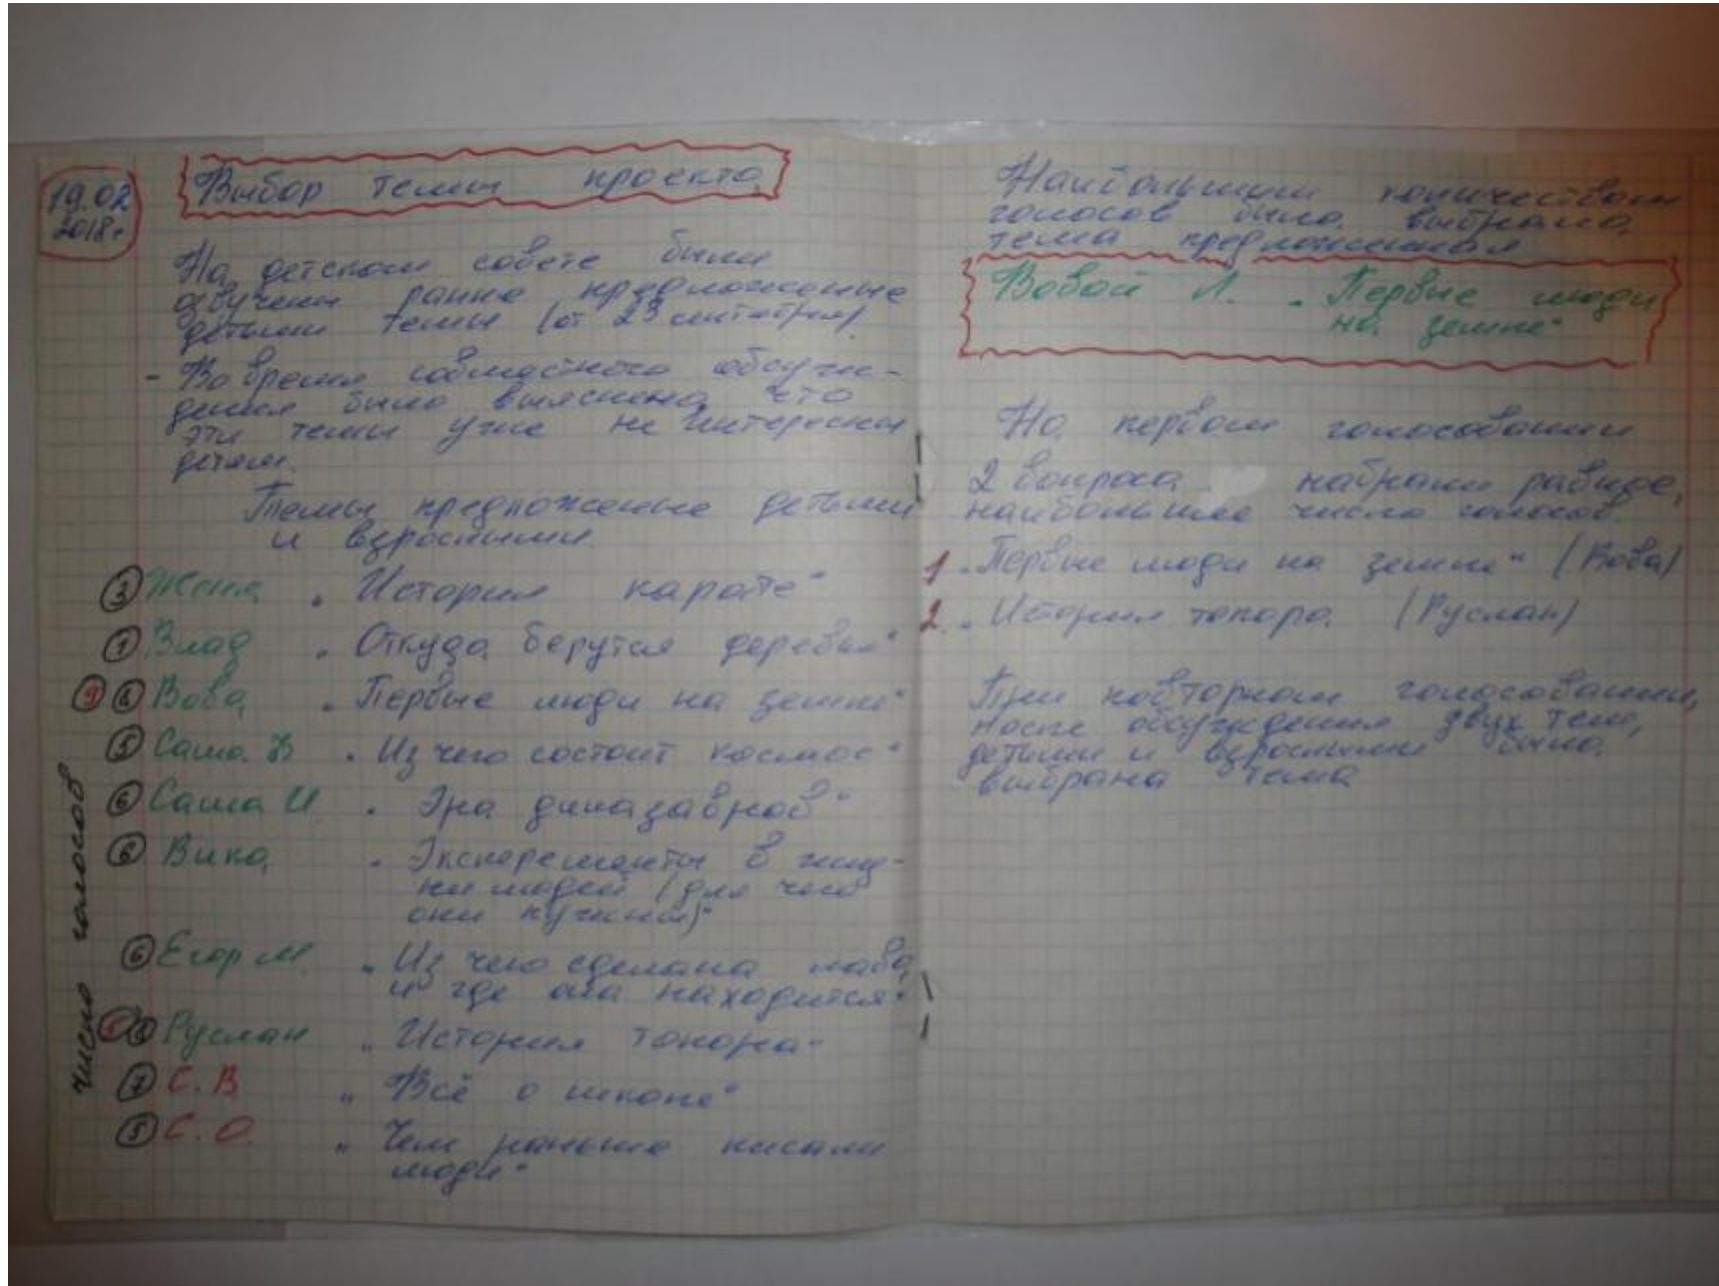 19.02
2018г
Выбор темы проекта
На детском совете были
озвучены ранне предложенные
детьми темы (от 23 сентября)
- Во время совместного обсуж-
дения было выяснено, что
эти темы уже не интересны
детям.
Темы предложенные детьми
и взрослыми.
число голосов
③ Женя „История карате“
① Влад „Откуда берутся деревья“
⑨ Вова „Первые люди на земле“
⑤ Саша „Из чего состоит космос“
⑥ Саша И „Эра диназавров“
⑥ Вика „Эксперементы в жиз-
ни людей (для чего
они нужны)“
⑥ Егор М. „Из чего сделана лава
и где она находится“
Руслан „История топора“
⑦ С.В „Всё о школе“
⑤ С.О. „Чем раньше писали
люди“
Наибольшим количеством
голосов была выбрана
тема предложенная
Вовой Л. „Первые люди
на земле“
На первом голосовании
2 вопроса набрали равное,
наибольшее число голосов.
1 „Первые люди на земле“ (Вова)
2. „История топора (Руслан)
При повторном голосовании,
после обсуждения двух тем,
детьми и взрослыми была
выбрана тема